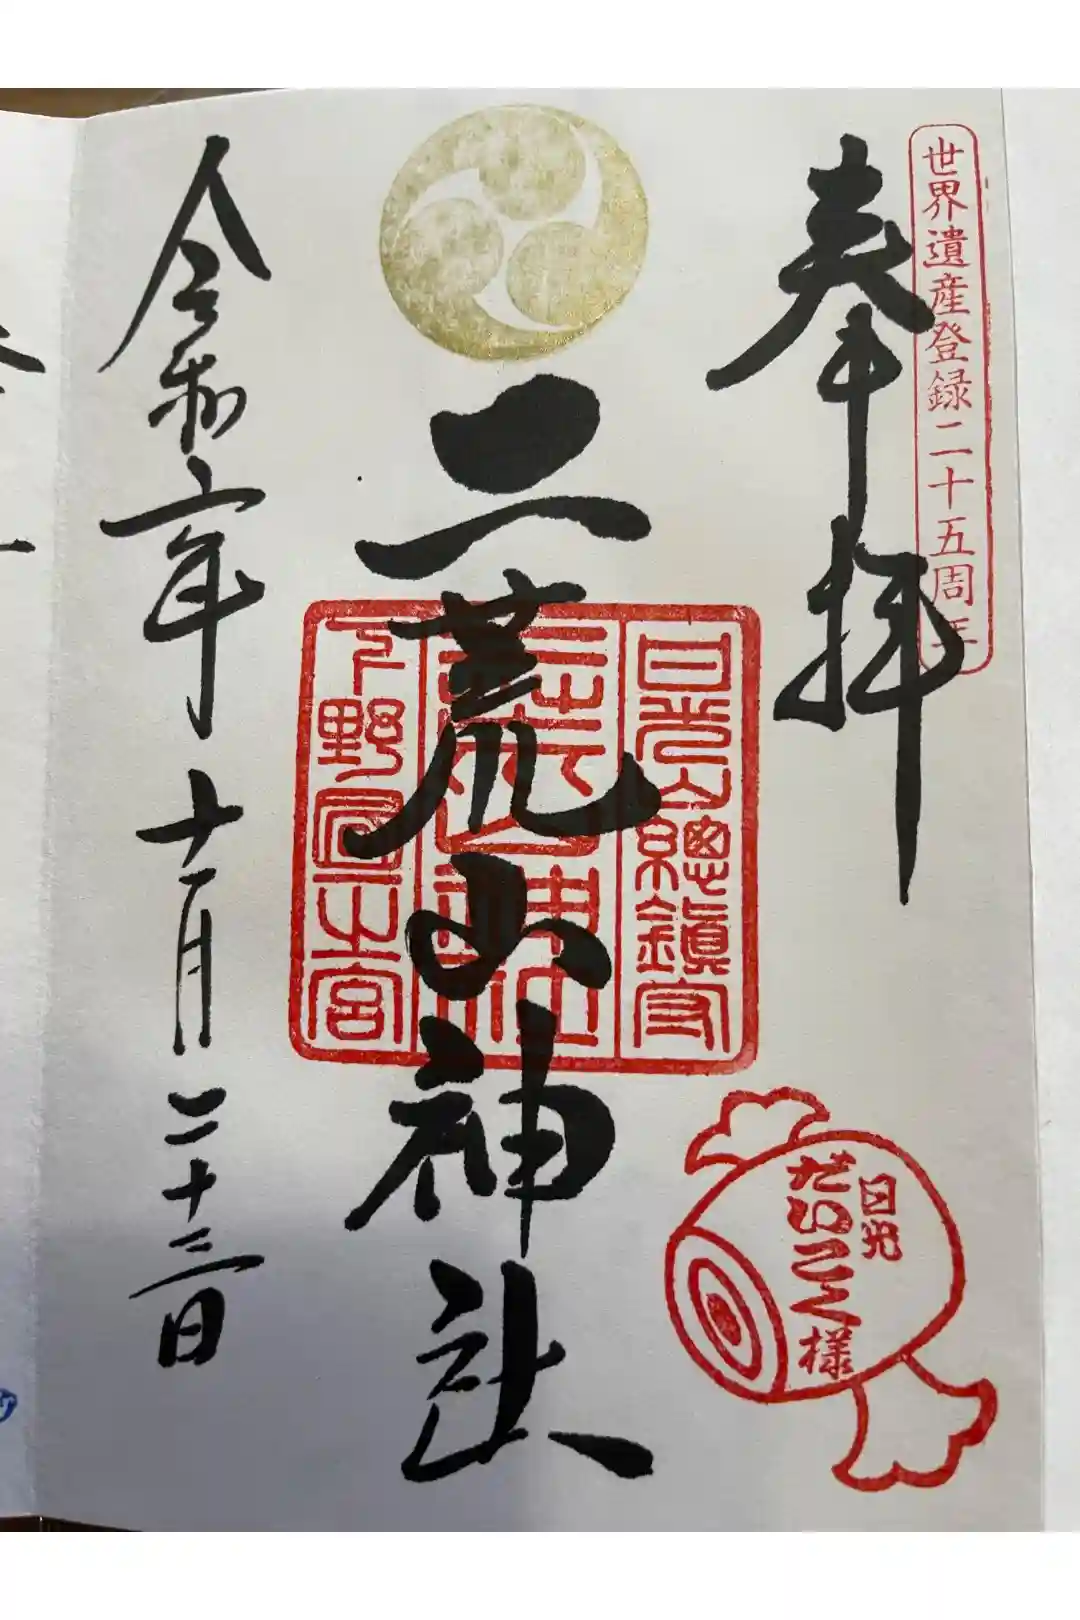 世界遺産登録二十五周年
奉拝
日光山總鎮守
二荒山神社
二荒山神社
下野國一宮
日光
だいこく様
令和六年十一月二十三日